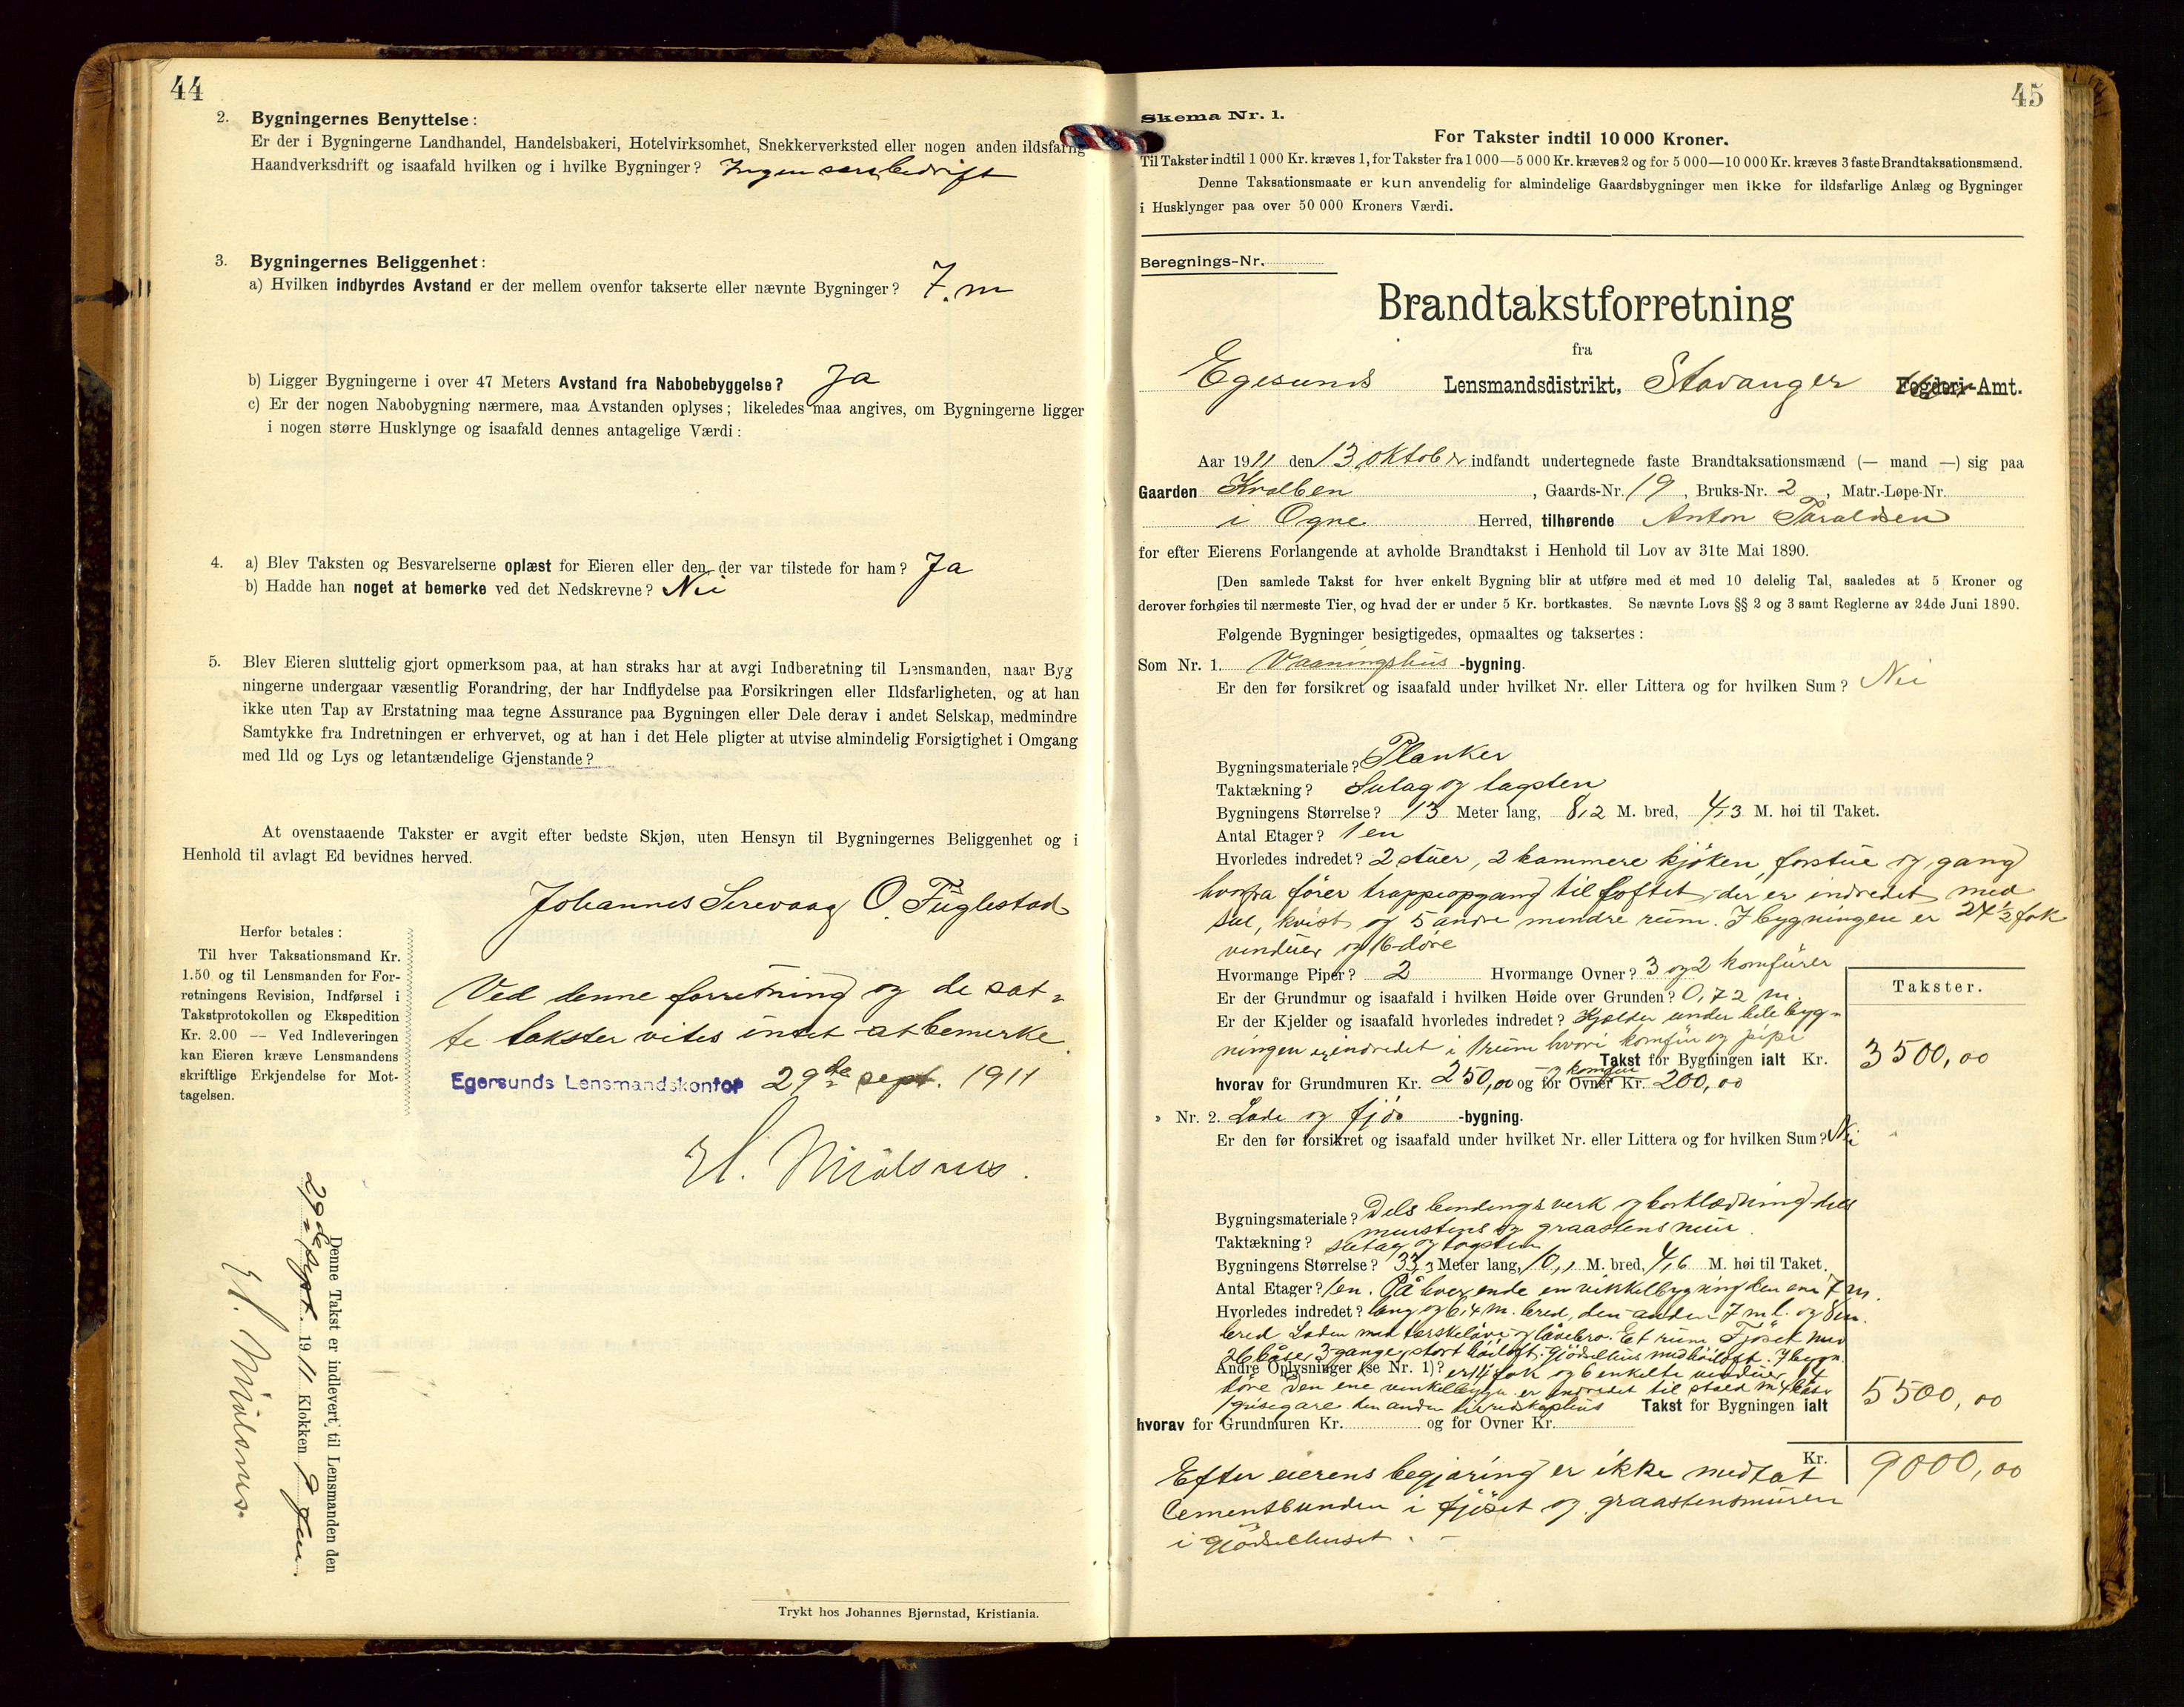 44
2. Bygningernes Benyttelse:
Er der i Bygningerne Landhandel, Handelsbakeri, Hotelvirksomhet, Snekkerverksted eller nogen anden ildsfarlig
Haandverksdrift og isaafald hvilken og i hvilke Bygninger? Ingen saan bedrift
3. Bygningernes Beliggenhet:
a) Hvilken indbyrdes Avstand er der mellem ovenfor takserte eller nævnte Bygninger? 7. m
b) Ligger Bygningerne i over 47 Meters Avstand fra Nabobebyggelse? Ja
c) Er der nogen Nabobygning nærmere, maa Avstanden oplyses; likeledes maa angives, om Bygningerne ligger
i nogen større Husklynge og isaafald dennes antagelige Værdi:
4. a) Blev Taksten og Besvarelserne oplæst for Eieren eller den, der var tilstede for ham? Ja
b) Hadde han noget at bemerke ved det Nedskrevne? Nei
5. Blev Eieren sluttelig gjort opmerksom paa, at han straks har at avgi Indberetning til Lensmanden, naar Byg
ningerne undergaar væsentlig Forandring, der har Indflydelse paa Forsikringen eller Ildsfarligheten, og at han
ikke uten Tap av Erstatning maa tegne Assurance paa Bygningen eller Dele derav i andet Selskap, medmindre
Samtykke fra Indretningen er erhvervet, og at han i det Hele pligter at utvise almindelig Forsigtighet i Omgang
med Ild og Lys og letantændelige Gjenstande?
At ovenstaaende Takster er avgit efter bedste Skjøn, uten Hensyn til Bygningernes Beliggenhet og i
Henhold til avlagt Ed bevidnes herved.
Johannes Sirevaag O. Fuglestad
Herfor betales:
Til hver Taksationsmand Kr.
1.50 og til Lensmanden for For-
retningens Revision, Indførsel i
Takstprotokollen og Ekspedition
Kr. 2.00 — Ved Indleveringen
kan Eieren kræve Lensmandens
skriftlige Erkjendelse for Mot-
tagelsen.
Ved denne forretning og de sat-
te takster vites intet at bemerke.
Egersunds Lensmandskontor 29de sept. 1911
H. Mjølsnes.
Denne Takst er indlevert til Lensmanden den
29de sept. 1911 Klokken 9 fm.
H. Mjølsnes.
Trykt hos Johannes Bjørnstad, Kristiania.
45
Skema Nr. 1.
For Takster indtil 10 000 Kroner.
Til Takster indtil 1 000 Kr. kræves 1, for Takster fra 1 000—5 000 Kr. kræves 2 og for 5 000—10 000 Kr. kræves 3 faste Brandtaksationsmænd.
Denne Taksationsmaate er kun anvendelig for almindelige Gaardsbygninger men ikke for ildsfarlige Anlæg og Bygninger
i Husklynger paa over 50 000 Kroners Værdi.
Beregnings-Nr.
Brandtakstforretning
fra
Egesunds Lensmandsdistrikt, Stavanger Fogderi-Amt.
Aar 1911 den 13 oktober indfandt undertegnede faste Brandtaksationsmænd (— mand —) sig paa
Gaarden Kvalben, Gaards-Nr. 19, Bruks-Nr. 2, Matr.-Løpe-Nr.
i Ogne Herred, tilhørende Anton Taraldsen
for efter Eierens Forlangende at avholde Brandtakst i Henhold til Lov av 31te Mai 1890.
[Den samlede Takst for hver enkelt Bygning blir at utføre med et med 10 delelig Tal, saaledes at 5 Kroner og
derover forhøies til nærmeste Tier, og hvad der er under 5 Kr. bortkastes. Se nævnte Lovs §§ 2 og 3 samt Reglerne av 24de Juni 1890.
Følgende Bygninger besigtigedes, opmaaltes og taksertes:
Som Nr. 1. Vaaningshus -bygning.
Er den før forsikret og isaafald under hvilket Nr. eller Littera og for hvilken Sum? Nei
Bygningsmateriale? Planker
Taktækning? Sutag og tagsten
Bygningens Størrelse? 13 Meter lang, 8,2 M. bred, 4,3 M. høi til Taket.
Antal Etager? 1 en
Hvorledes indredet? 2 stuer, 2 kammere kjøken, forstue og gang
hvorfra fører trappeopgang til loftet, der er indredet med
sal, kvist og 5 andre mindre rum. I bygningen er 24 ½ fak
vinduer og 16 døre
Hvormange Piper? 2 Hvormange Ovner? 3 og 2 komfurer
Er der Grundmur og isaafald i hvilken Høide over Grunden? 0,72 m
Er der Kjelder og isaafald hvorledes indredet? Kjelder under hele byg-
ningen er indredet i 1 rum hvori komfur og pipe
Takster.
Takst for Bygningen ialt Kr. 3500,00
hvorav for Grundmuren Kr. 250,00 og for Ovner 2 komfur Kr. 200,00
» Nr. 2. Lade og fjøs -bygning.
Er den før forsikret og isaafald under hvilket Nr. eller Littera og for hvilken Sum? Nei
Bygningsmateriale? Dels bindingsverk og bordklædning dels
murstens og graastensmur
Taktækning? sutag og tagsten
Bygningens Størrelse? 33,3 Meter lang, 10,1 M. bred, 4,6 M. høi til Taket.
Antal Etager? 1 en. På hver ende en vinkelbygning den ene 7 m.
Hvorledes indredet? lang og 6,4 m. bred, den anden 7 m l. og 8 m.
bred Laden med terskelåve og låvebro. Et rum Fjøset med
26 båser, 3 gange, stort høiloft. Gjødselhus med høiloft. I bygn.
Andre Oplysninger (se Nr. 1)? er 14 fak og 6 enkelte vinduer, 14
døre Den ene vinkelbygn. er indredet til stald m 4 båse
1 grisegare den anden til redskaphus Takst for Bygningen ialt 5500,00
hvorav for Grundmuren Kr. og for Ovner Kr.
Kr. 9000,00
Efter eierens begjæring er ikke medtat
Cementbunden i fjøset og graastensmuren
i Gjødselhuset.